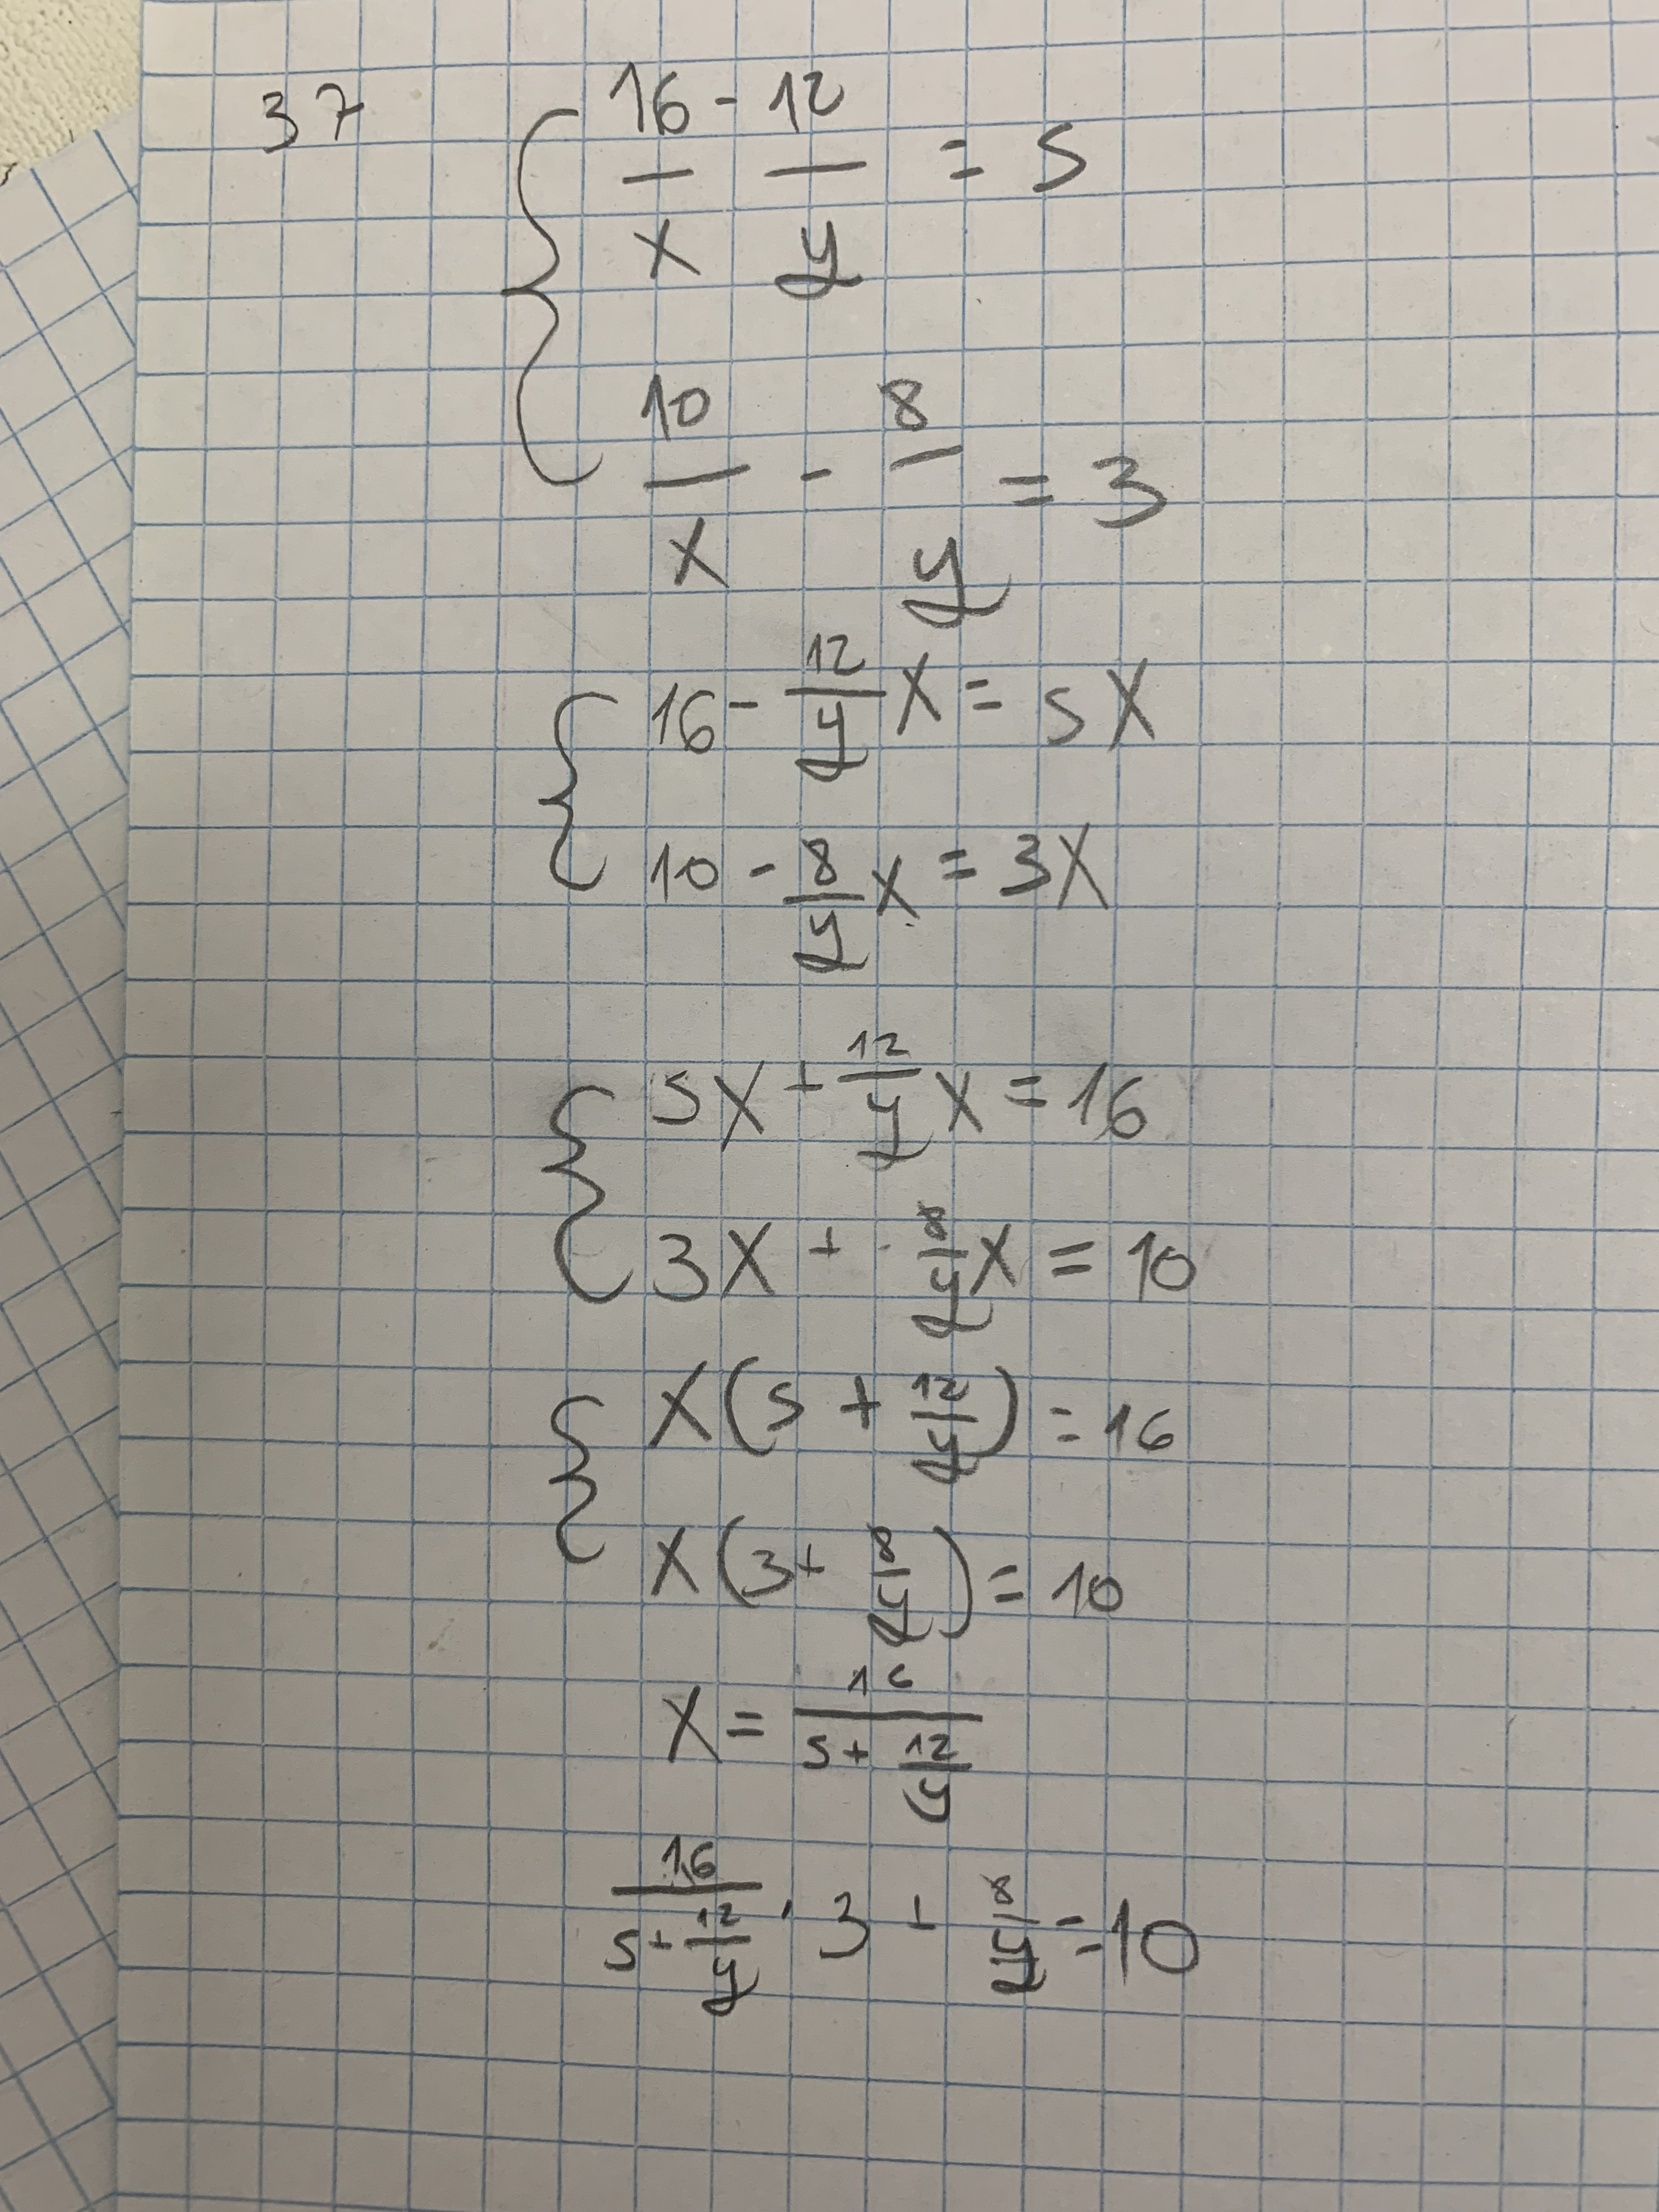 37
16/x - 12/y = 5
10/x - 8/y = 3
16 - 12/y x = 5x
10 - 8/y x = 3x
5x + 12/y x = 16
3x + 8/y x = 10
x(5 + 12/y) = 16
x(3 + 8/y) = 10
x = 16/(5 + 12/y)
16/(5 + 12/y) · 3 + 8/y = 10